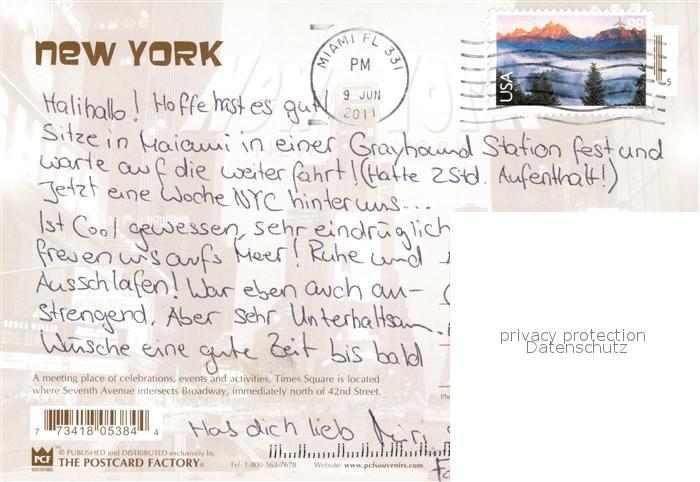 NEW YORK
MIAMI FL 331
PM
9 JUN
2011
98
USA
5
Halihallo! Hoffe hast es gut!
Sitze in Maiami in einer Grayhound Station fest und
warte auf die weiterfahrt! (Hatte 2 Std. Aufenthalt!)
Jetzt eine Woche NYC hinter uns...
Ist Cool gewessen, sehr eindrüglich
freuen uns aufs Meer! Ruhe und
Ausschlafen! War eben auch an-
strengend. Aber sehr Unterhaltsam.
Wünsche eine gute Zeit bis bald
privacy protection
Datenschutz
A meeting place of celebrations, events and activities, Times Square is located
where Seventh Avenue intersects Broadway, immediately north of 42nd Street.
Has dich lieb
7 73418 05384 4
PCF
SOUVENIRS
© PUBLISHED and DISTRIBUTED exclusively by
THE POSTCARD FACTORY®
Tel: 1-800-563-7678 Website: www.pcfsouvenirs.com